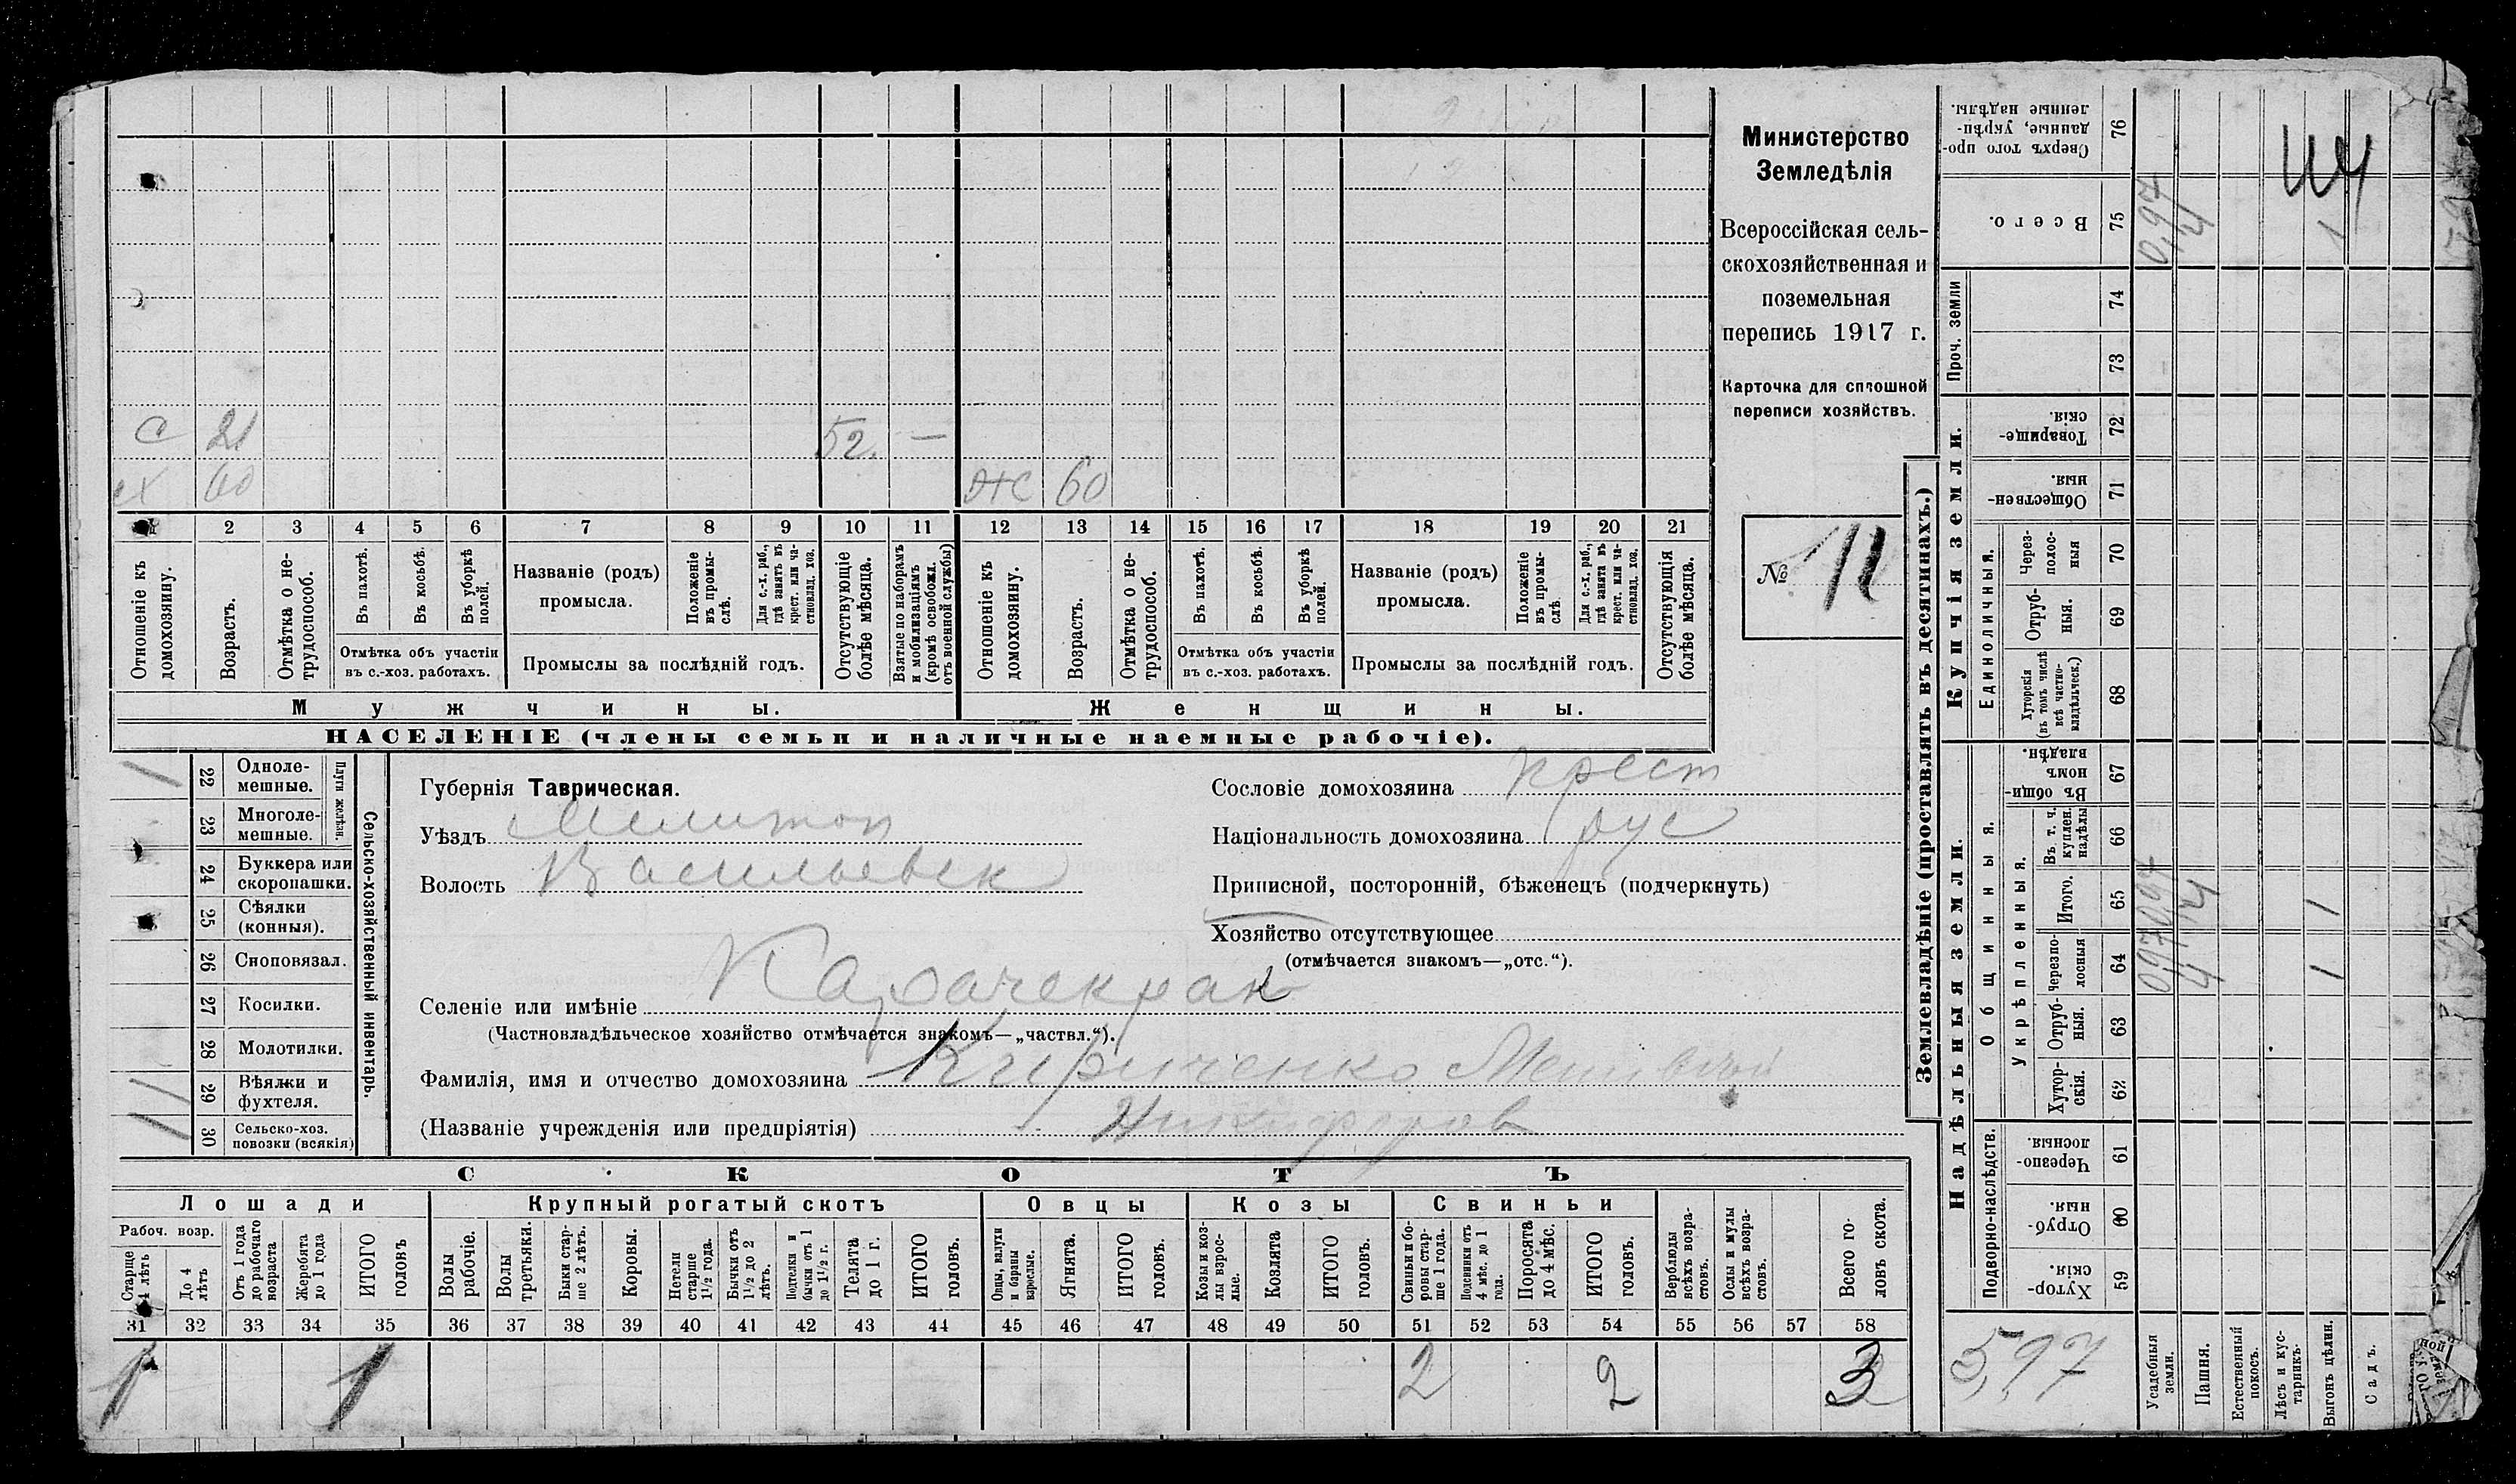 Министерство
Земледѣлія
Всероссійская сель-
скохозяйственная и
поземельная
перепись 1917 г.
Карточка для сплошной
переписи хозяйствъ.
№ 12
с 21 52. —
х 60 ж 60
1 2 3 4 5 6 7 8 9 10 11 12 13 14 15 16 17 18 19 20 21
Отношеніе къ домохозяину.
Возрастъ.
Отмѣтка о не-трудоспособ.
Въ пахотѣ.
Въ косьбѣ.
Въ уборкѣ полей.
Отмѣтка объ участіи
въ с.-хоз. работахъ.
Названіе (родъ)
промысла.
Положеніе въ промы-слѣ.
Для с.-х. раб., гдѣ занятъ въ крест. или ча-стновлад. хоз.
Промыслы за послѣдній годъ.
Отсутствующіе болѣе мѣсяца.
Взятые по наборамъ и мобилизаціямъ (кромѣ освобожд. отъ военной службы)
Отношеніе къ домохозяину.
Возрастъ.
Отмѣтка о не-трудоспособ.
Въ пахотѣ.
Въ косьбѣ.
Въ уборкѣ полей.
Отмѣтка объ участіи
въ с.-хоз. работахъ.
Названіе (родъ)
промысла.
Положеніе въ промы-слѣ.
Для с.-х. раб., гдѣ занята въ крест. или ча-стновлад. хоз.
Промыслы за послѣдній годъ.
Отсутствующія болѣе мѣсяца.
Мужчины. Женщины.
НАСЕЛЕНІЕ (члены семьи и наличные наемные рабочіе).
Сельско-хозяйственный инвентарь.
Плуги желѣзн.
22 Одноле-мешные. 1
23 Многоле-мешные.
24 Буккера или скоропашки.
25 Сѣялки (конныя).
26 Сноповязал.
27 Косилки.
28 Молотилки.
29 Вѣялки и фухтеля. 1
30 Сельско-хоз. повозки (всякія) 1
Губернія Таврическая.
Уѣздъ Мелитоп
Волость Васильевск
Сословіе домохозяина крест
Національность домохозяина рус
Приписной, посторонній, бѣженецъ (подчеркнуть)
Хозяйство отсутствующее
(отмѣчается знакомъ—„отс.“).
Селеніе или имѣніе Карачекрак
(Частновладѣльческое хозяйство отмѣчается знакомъ—„частвл.“).
Фамилія, имя и отчество домохозяина Кириченко
(Названіе учрежденія или предпріятія) Никифоров
СКОТЪ
Лошади Крупный рогатый скотъ Овцы Козы Свиньи
Рабоч. возр.
Старше 4 лѣтъ
До 4 лѣтъ
Отъ 1 года до рабочаго возраста
Жеребята до 1 года
ИТОГО головъ
Волы рабочіе.
Волы третьяки.
Быки стар-ше 2 лѣтъ.
Коровы.
Нетели старше 1½ года.
Бычки отъ 1½ до 2 лѣтъ.
Подтелки и бычки отъ 1 до 1½ г.
Телята до 1 г.
ИТОГО головъ.
Овцы, валухи и бараны взрослые.
Ягнята.
ИТОГО головъ.
Козы и коз-лы взрос-лые.
Козлята
ИТОГО головъ.
Свиньи и бо-ровы стар-ше 1 года.
Подсвинки отъ 4 мѣс. до 1 года.
Поросята до 4 мѣс.
ИТОГО головъ.
Верблюды всѣхъ возра-стовъ.
Ослы и мулы всѣхъ возра-стовъ.
Всего го-ловъ скота.
31 32 33 34 35 36 37 38 39 40 41 42 43 44 45 46 47 48 49 50 51 52 53 54 55 56 57 58
1 1 2 2 3
Землевладѣніе (проставлять въ десятинахъ.)
Купчія земли.
Надѣльныя земли.
Сверхъ того про-данные, укрѣп-ленные надѣлы. 76
Всего. 75 0,97 4 1
Проч. земли 74 73
Товарище-скія. 72
Обществен-ныя. 71
Единоличныя.
Через-полос-ныя 70
Отруб-ныя. 69
Хуторскія (въ томъ числѣ всѣ частно-владѣльческ.) 68
Общинныя.
Укрѣпленныя.
Въ общи-номъ владѣн. 67
Въ т. ч. куплен. надѣлы 66
Итого. 65 0,97 4 1
Черезпо-лосныя 64 0,97 4 1
Отруб-ныя. 63
Хутор-скія. 62
Подворно-наслѣдств.
Черезпо-лосныя. 61
Отруб-ныя. 60
Хутор-скія. 59
5,97
Усадебныя земли.
Пашня.
Естественный покосъ.
Лѣсъ и кус-тарникъ.
Выгонъ цѣлин.
Садъ.